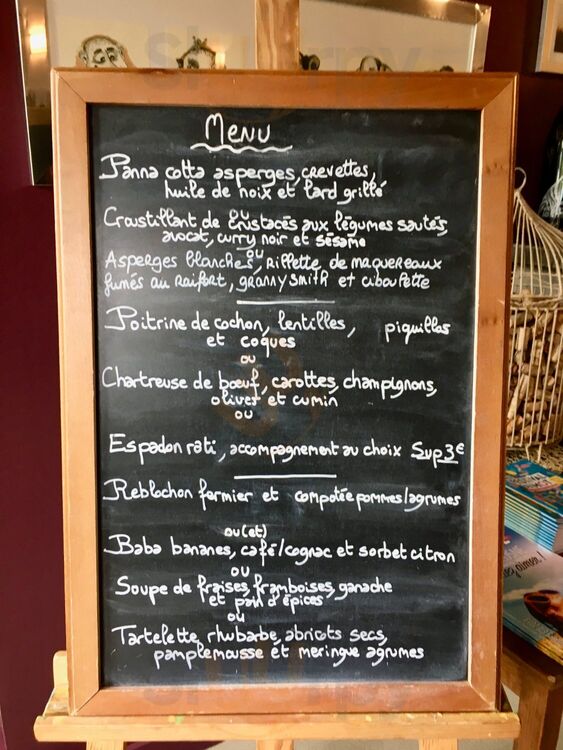 Menu
Panna cotta asperges, crevettes,
huile de noix et lard grillé
ou
Croustillant de crustacés aux légumes sautés,
avocat, curry noir et sésame
ou
Asperges blanches, rillette de maquereaux
fumés au raifort, granny smith et ciboulette
Poitrine de cochon, lentilles, piquillos
et coques
ou
Chartreuse de bœuf, carottes, champignons,
olives et cumin
ou
Espadon rôti, accompagnement au choix Sup 3€
Reblochon fermier et compotée pommes/agrumes
ou (et)
Baba bananes, café/cognac et sorbet citron
ou
Soupe de fraises, framboises, ganache
et pain d'épices
ou
Tartelette rhubarbe, abricots secs,
pamplemousse et meringue agrumes